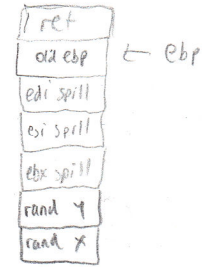 ret
old ebp ← ebp
edi spill
esi spill
ebx spill
rand Y
rand X